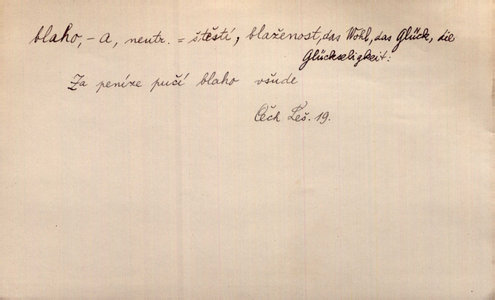 blaho, - a, neutr. = štěstí, blaženost, das Wohl, das Glück, die
Glückseligkeit:
Za peníze pučí blaho všude
Čěch Leš. 19.